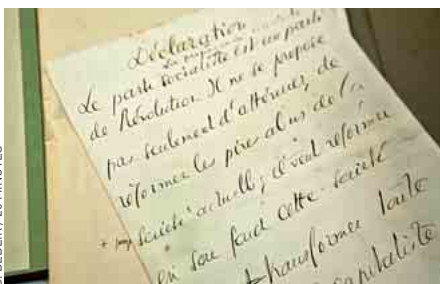 Déclaration
Le parti socialiste est un parti
de Révolution. Il ne se propose
pas seulement d'atténuer, de
réformer les pires abus de la
société actuelle; il veut réformer
en son fond cette société
transformer toute
capitaliste